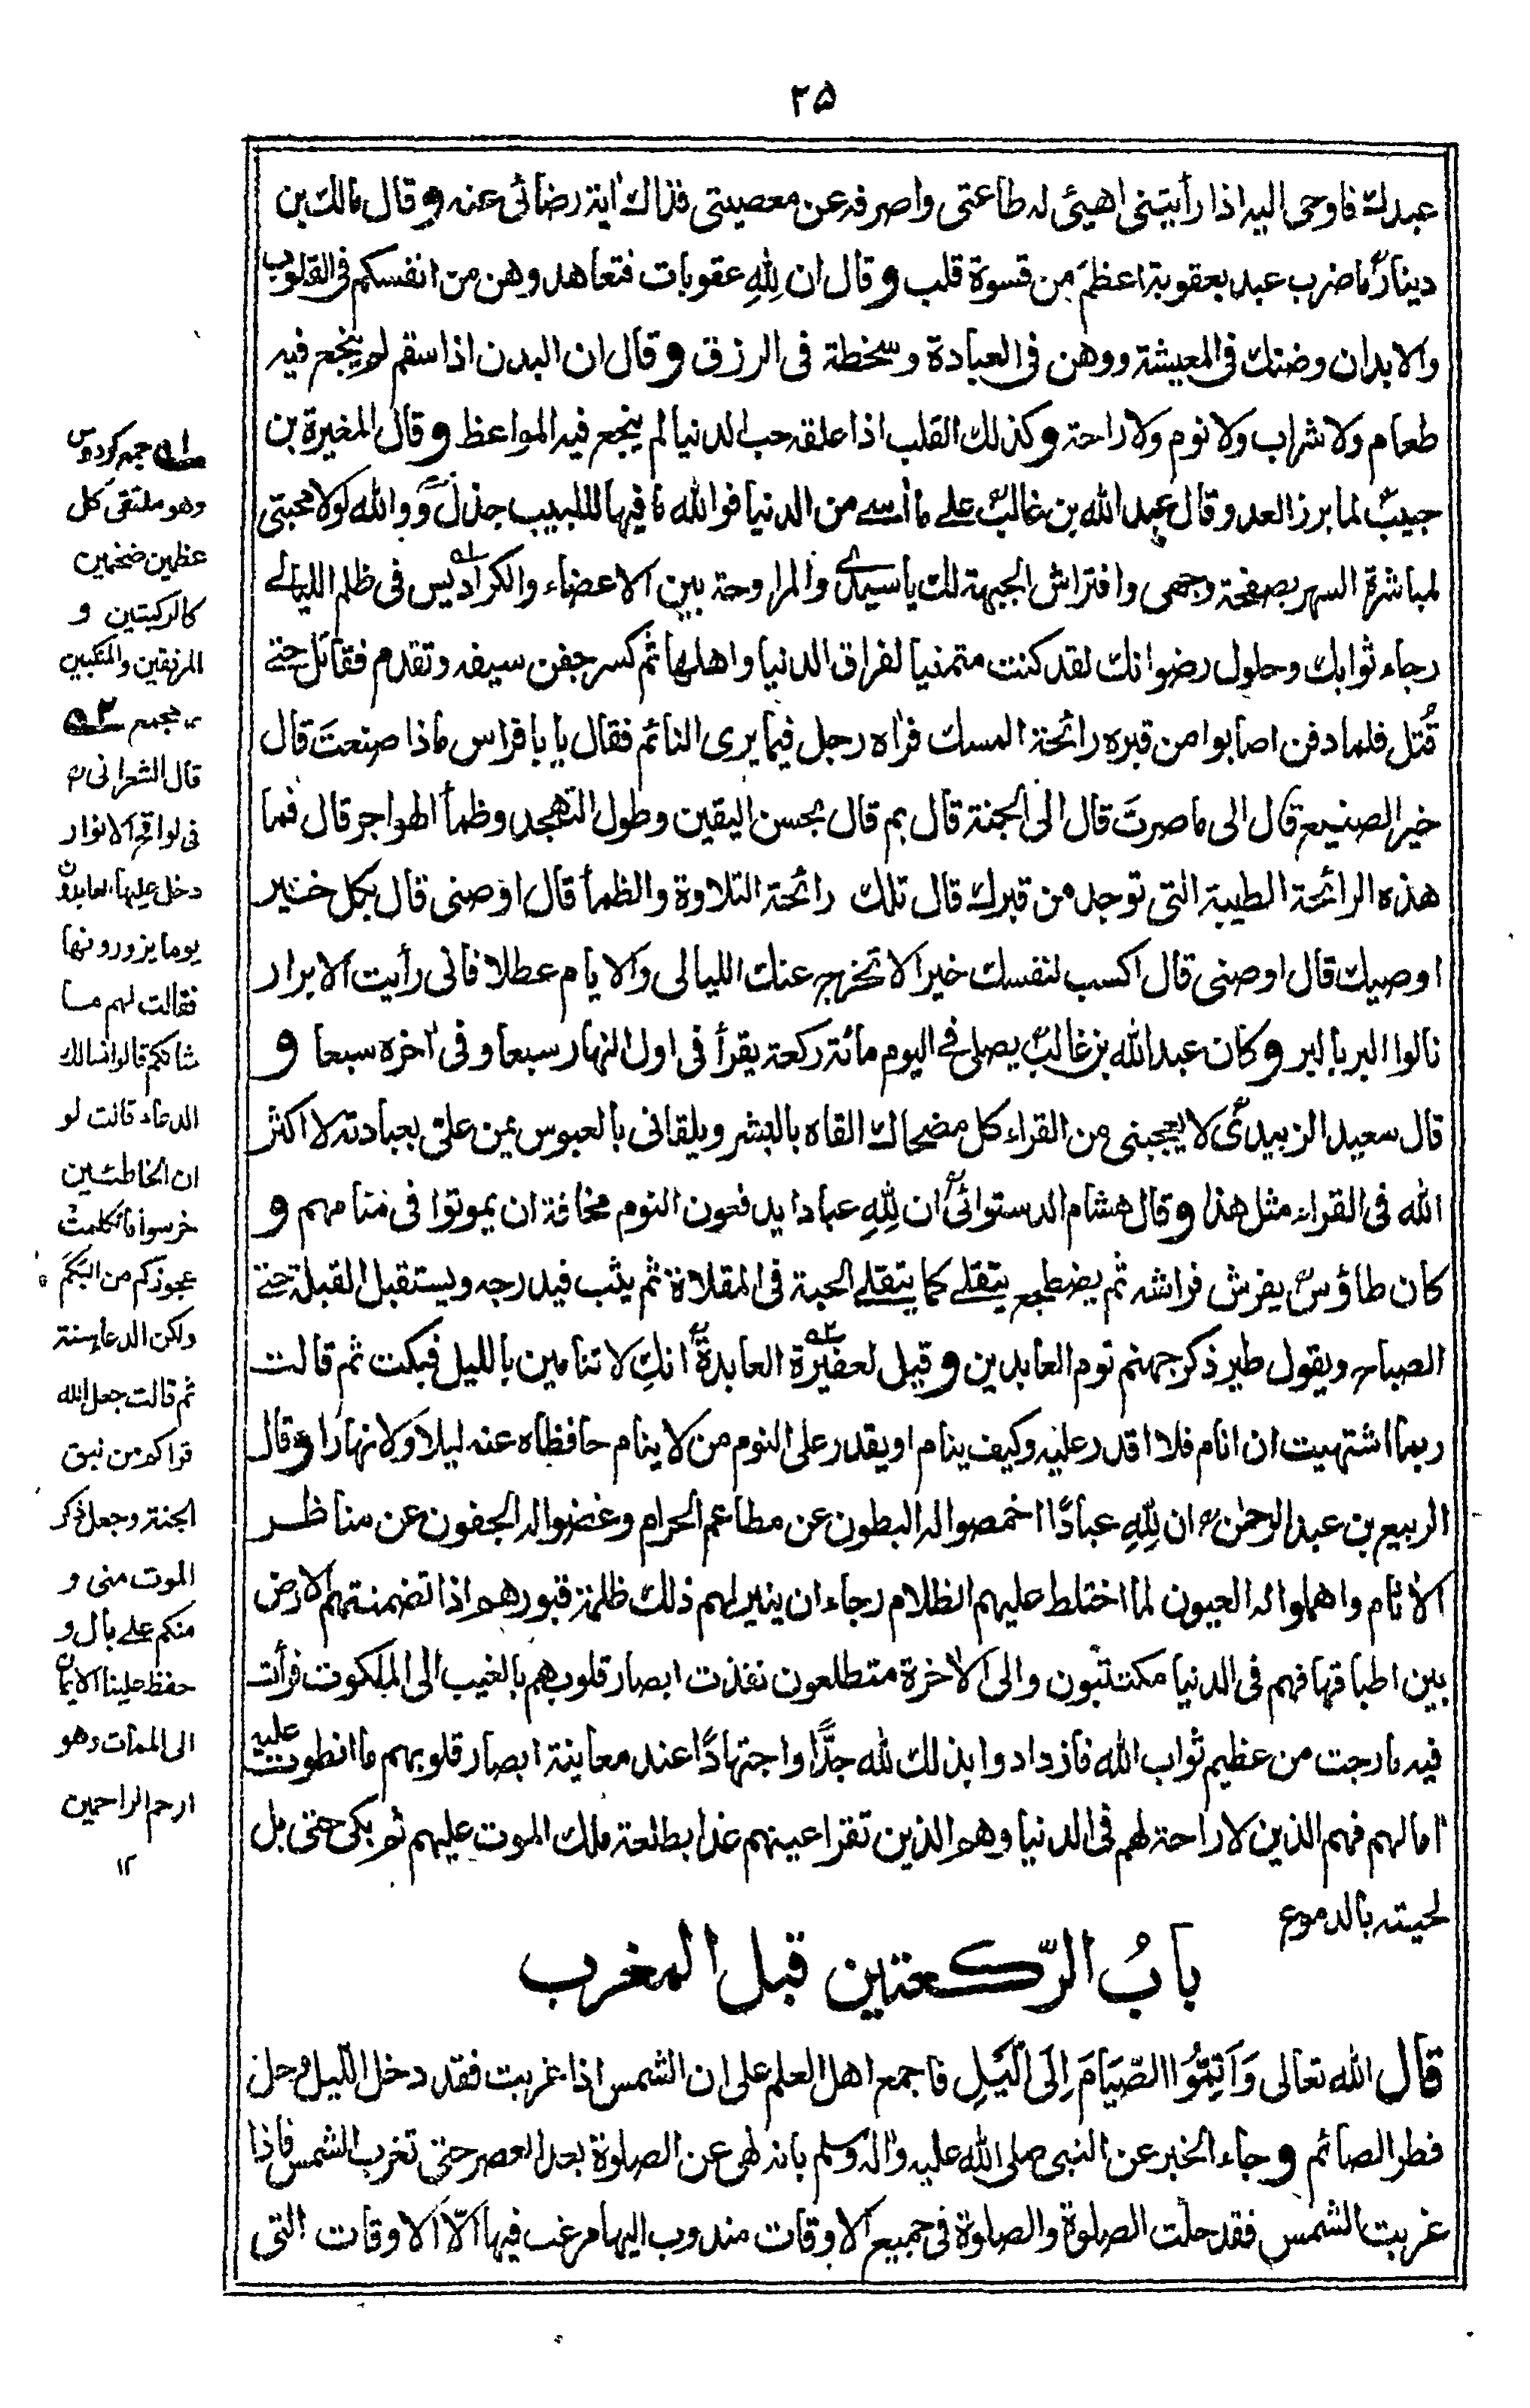 ٢٥
عبدك فاوحى اليه اذا رأيتنى اهيئ له طاعتى واصرفه عن معصيتى فذاك اية رضائى عنه وقال مالك بن
دينارؒ ما ضرب عبد بعقوبة اعظم من قسوة قلب وقال ان لله عقوبات فتعاهدوهن من انفسكم فى القلوب
والابدان وضنك فى المعيشة ووهن فى العبادة وسخطة فى الرزق وقال ان البدن اذا سقم لم ينجع فيه
طعام ولا شراب ولا نوم ولا راحة وكذلك القلب اذا علقه حب الدنيا لم ينجع فيه المواعظ وقال المغيرة بن
حبيبؒ لما برز العدو قال عبد الله بن غالبؒ على ما أسى من الدنيا فوالله ما فيها للبيب جذل ووالله لولا محبتى
لمباشرة السهر بصفحة وجهى وافتراش الجبهة لك يا سيدى والمراوحة بين الاعضاء والكراديس فى ظلم الليالى
رجاء ثوابك وحلول رضوانك لقد كنت متمنيا لفراق الدنيا واهلها ثم كسر جفن سيفه وتقدم فقاتل حتى
قُتل فلما دفن اصابوا من قبره رائحة المسك فرأه رجل فيما يرى النائم فقال يا با فراس ماذا صنعتَ قال
خير الصنيع قال الى ما صرتَ قال الى الجنة قال بم قال بحسن اليقين وطول التهجد وظمأ الهواجر قال فما
هذه الرائحة الطيبة التى توجد من قبرك قال تلك رائحة التلاوة والظمأ قال اوصنى قال بكل خير
اوصيك قال اوصنى قال اكسب لنفسك خيرا لا تخرج عنك الليالى والايام عطلا فانى رأيت الابرار
نالوا البر بالبر وكان عبد الله بن غالبؒ يصلى فى اليوم مائة ركعة يقرأ فى اول النهار سبعا وفى اخره سبعا و
قال سعيد الزبيدىؒ لا يعجبنى من القراء كل مضحاك القاه بالبشر ويلقانى بالعبوس يمن على بعبادته لا اكثر
الله فى القراء مثل هذا وقال هشام الدستوائىؒ ان لله عبادا يدفعون النوم مخافة ان يموتوا فى منامهم و
كان طاؤسؒ يفرش فراشه ثم يضطجع يتقلى كما يتقلى الحبة فى المقلاة ثم يثب فيدرجه ويستقبل القبلة حتى
الصباح ويقول طير ذكر جهنم نوم العابدين وقيل لعفيرة العابدةؒ انكِ لا تنامين بالليل فبكت ثم قالت
ربما اشتهيت ان انام فلا اقدر عليه وكيف ينام او يقدر على النوم من لا ينام حافظاه عنه ليلا ولا نهارا وقال
الربيع بن عبد الرحمٰنؒ ان لله عبادًا اخمصوا له البطون عن مطاعم الحرام وغضوا له الجفون عن مناظر
الأثام واهملوا له العيون لما اختلط عليهم الظلام رجاء ان ينير لهم ذلك ظلمة قبورهم اذا تضمنتهم الارض
بين اطباقها فهم فى الدنيا مكتئبون والى الأخرة متطلعون نفذت ابصار قلوبهم بالغيب الى الملكوت فرأت
فيه ما رجت من عظيم ثواب الله فازدادوا بذلك لله جدًّا واجتهادًا عند معاينة ابصار قلوبهم ما انطوت عليه
امالهم فهم الذين لا راحة لهم فى الدنيا وهم الذين تقر اعينهم غدا بطلعة ملك الموت عليهم ثم بكى حتى بل
لحيته بالدموع
بابُ الرّكعتين قبل المغرب
قال الله تعالى وَاَتِمُّوا الصِّيَامَ اِلَى الَّيْلِ فاجمع اهل العلم على ان الشمس اذا غربت فقد دخل الليل وحل
فطر الصائم وجاء الخبر عن النبى صلى الله عليه واله وسلم بانه نهى عن الصلوة بعد العصر حتى تغرب الشمس فاذا
غربت الشمس فقد حلت الصلوة والصلوة فى جميع الاوقات مندوب اليها مرغب فيها الّا الاوقات التى
لے جمع كردوس
وهو ملتقى كل
عظمين ضخمين
كالركبتين و
المرفقين والمنكبين
١٢ مجمع لے٢
قال الشعرانىؒ
فى لواقح الانوار
دخل عليها العابدون
يوما يزورونها
فقالت لهم ما
شانكم قالوا نسالك
الدعاء قالت لو
ان الخاطئين
خرسوا ما تكلمت
عجوزكم من البَكَم
ولكن الدعاء سنة
ثم قالت جعل الله
قراكم من نبق
الجنة وجعل ذكر
الموت منى و
منكم على بال و
حفظ علينا الايمان
الى الممات وهو
ارحم الراحمين
١٢